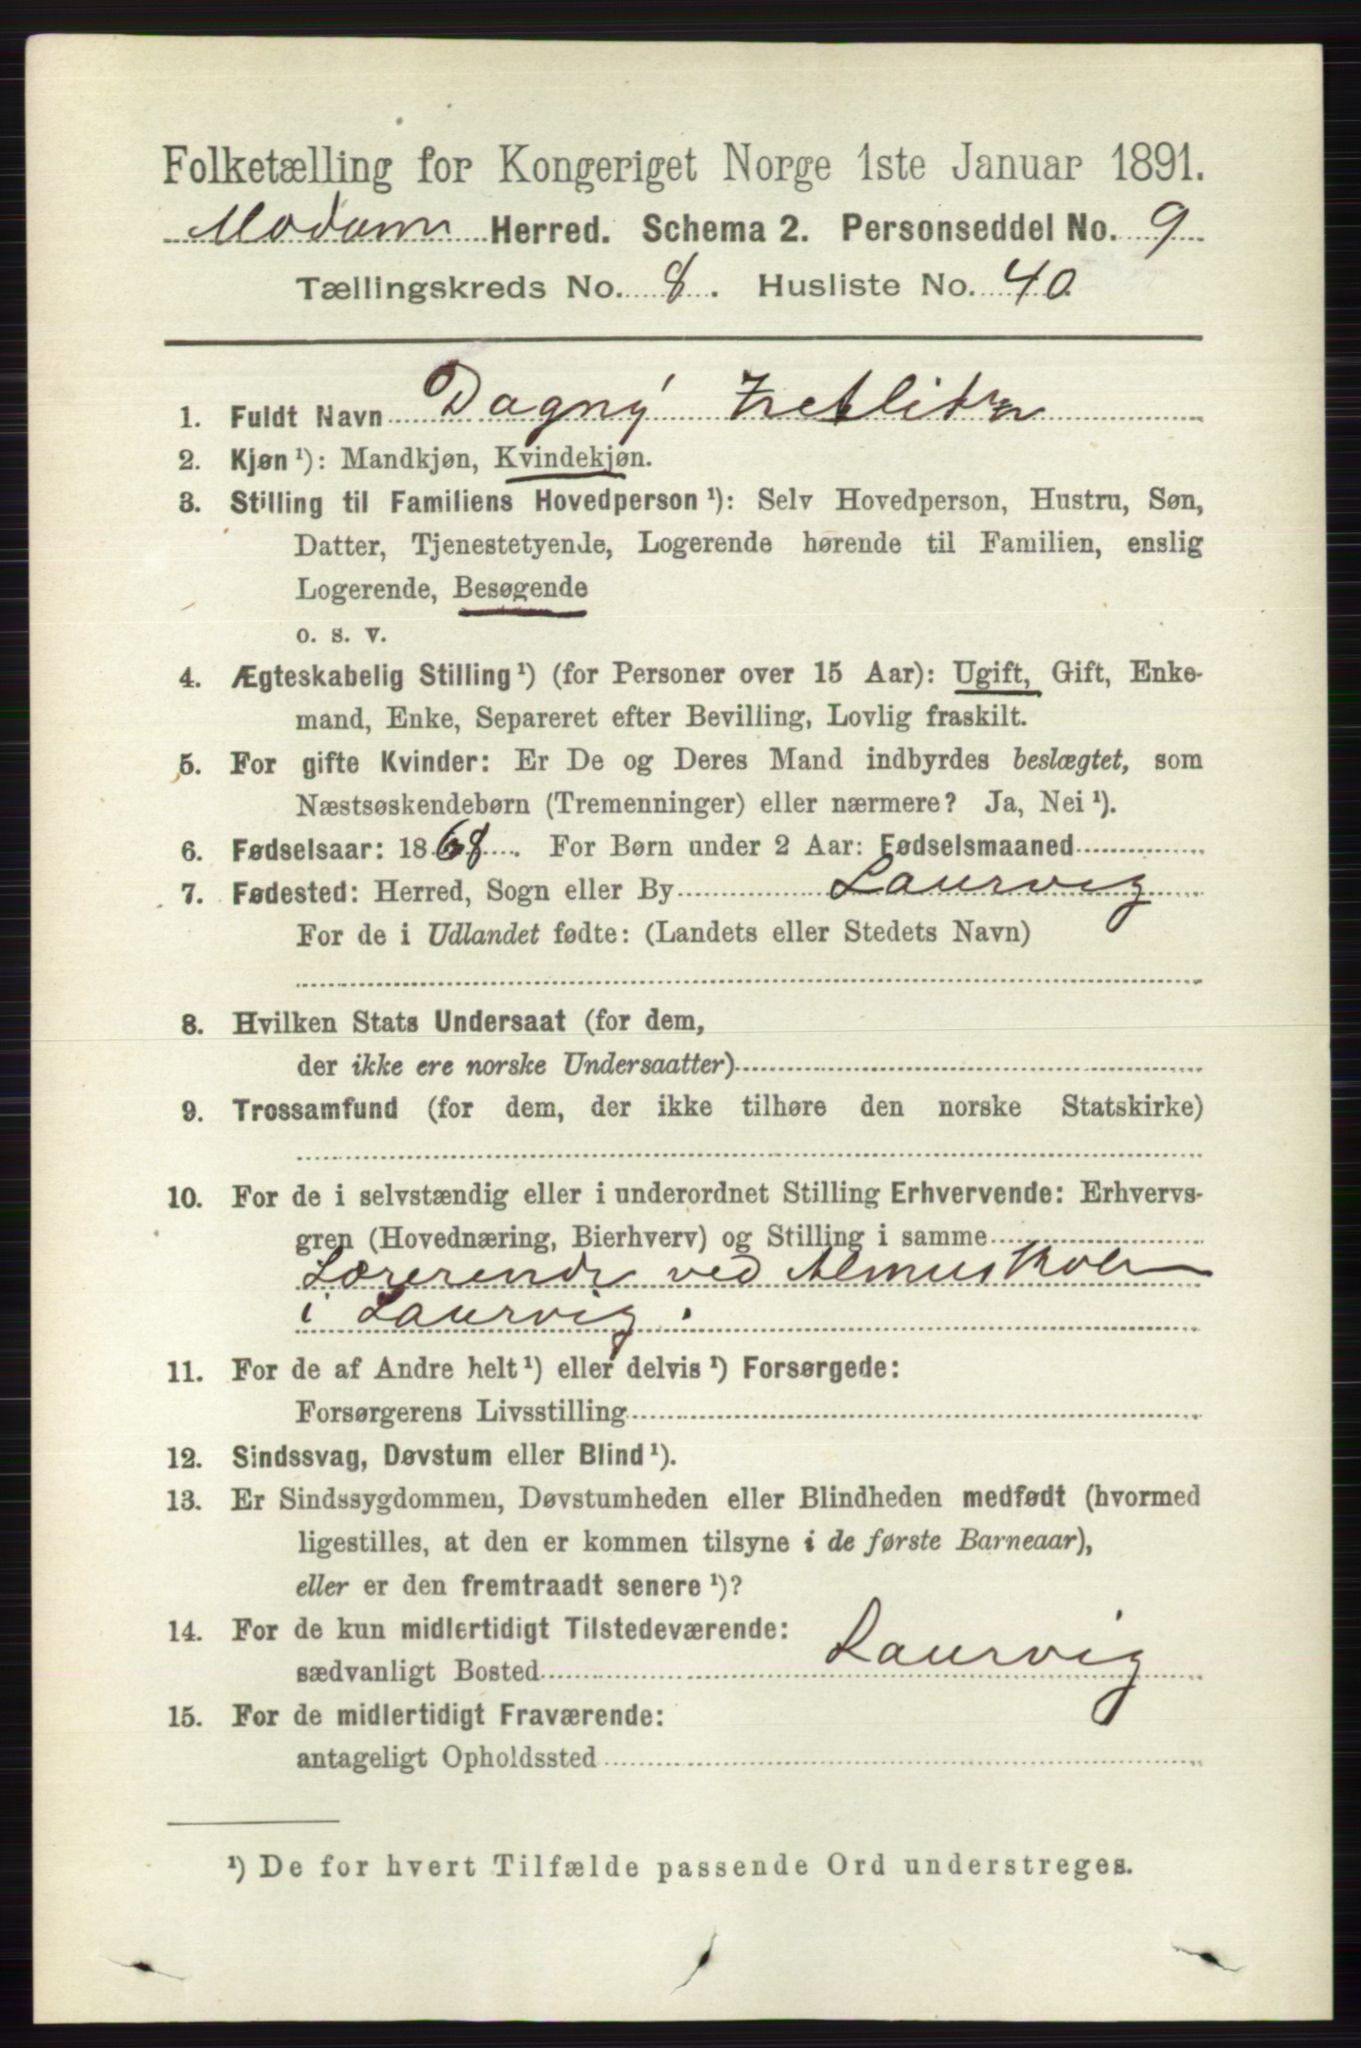 Folketælling for Kongeriget Norge 1ste Januar 1891.
Modum Herred. Schema 2. Personseddel No. 9
Tællingskreds No. 8. Husliste No. 40
1. Fuldt Navn Dagny
2. Kjøn¹): Mandkjøn, Kvindekjøn.
3. Stilling til Familiens Hovedperson¹): Selv Hovedperson, Hustru, Søn,
Datter, Tjenestetyende, Logerende hørende til Familien, enslig
Logerende, Besøgende
o. s. v.
4. Ægteskabelig Stilling¹) (for Personer over 15 Aar): Ugift, Gift, Enke-
mand, Enke, Separeret efter Bevilling, Lovlig fraskilt.
5. For gifte Kvinder: Er De og Deres Mand indbyrdes beslægtet, som
Næstsøskendebørn (Tremenninger) eller nærmere? Ja, Nei¹).
6. Fødselsaar: 1868. For Børn under 2 Aar: Fødselsmaaned
7. Fødested: Herred, Sogn eller By Laurvig
For de i Udlandet fødte: (Landets eller Stedets Navn)
8. Hvilken Stats Undersaat (for dem,
der ikke ere norske Undersaatter)
9. Trossamfund (for dem, der ikke tilhøre den norske Statskirke)
10. For de i selvstændig eller i underordnet Stilling Erhvervende: Erhvervs-
gren (Hovednæring, Bierhverv) og Stilling i samme
Lærerinde ved Almuskolen
i Laurvig.
11. For de af Andre helt¹) eller delvis¹) Forsørgede:
Forsørgerens Livsstilling
12. Sindssvag, Døvstum eller Blind¹).
13. Er Sindssygdommen, Døvstumheden eller Blindheden medfødt (hvormed
ligestilles, at den er kommen tilsyne i de første Barneaar),
eller er den fremtraadt senere¹)?
14. For de kun midlertidigt Tilstedeværende:
sædvanligt Bosted Laurvig
15. For de midlertidigt Fraværende:
antageligt Opholdssted
¹) De for hvert Tilfælde passende Ord understreges.